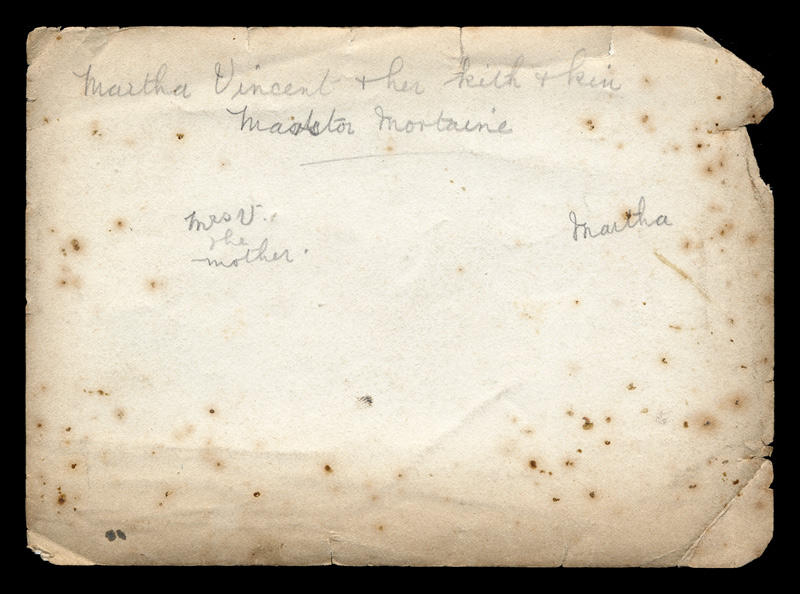 Martha Vincent + her kith + kin
Mortaine
Mrs V.
the
mother.
Martha